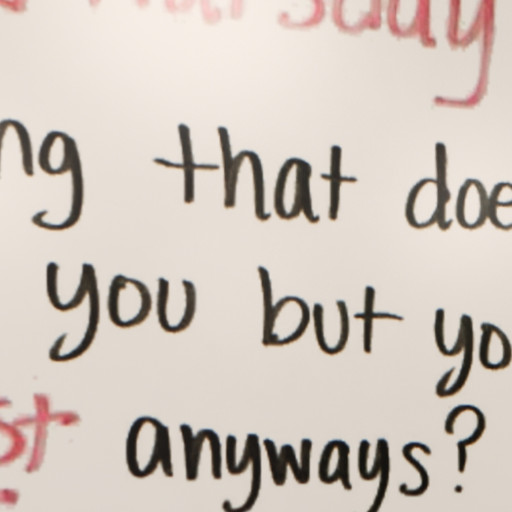 Thursday
ng that doe
you but yo
st anyways?